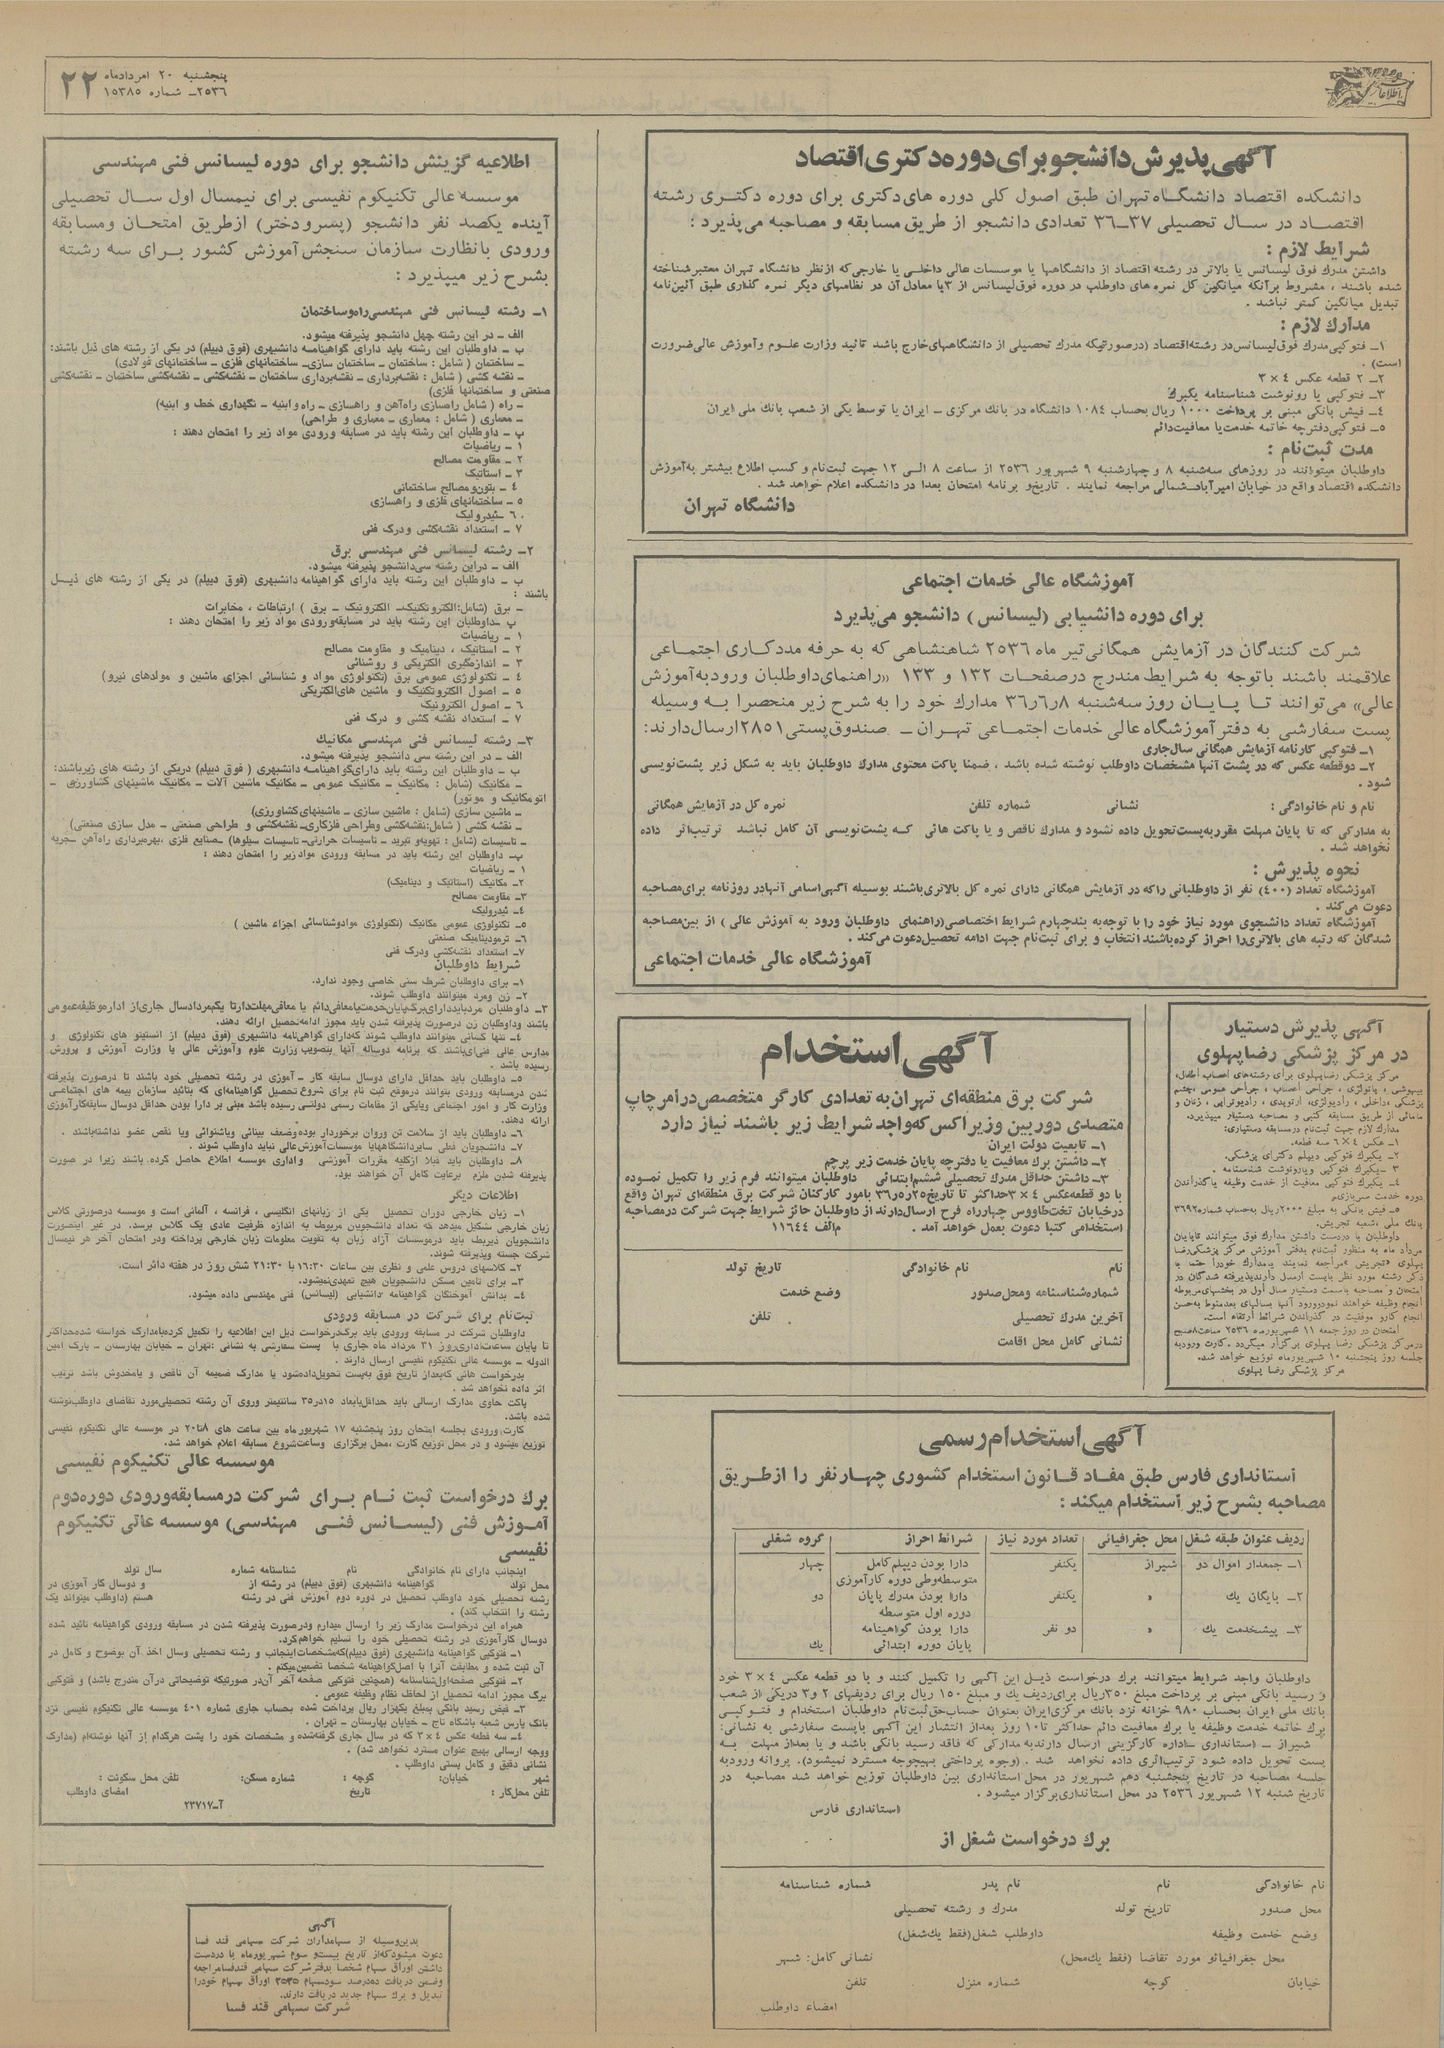 پنجشنبه ۲۰ امردادماه
۲۵۳۶ـ شماره ۱۵۳۸۵
۲۲
آگهی پذیرش دانشجو برای دوره دکتری اقتصاد
دانشکده اقتصاد دانشگاه تهران طبق اصول کلی دوره های دکتری برای دوره دکتری رشته
اقتصاد در سال تحصیلی ۳۷ـ۳۶ تعدادی دانشجو از طریق مسابقه و مصاحبه می‌پذیرد :
شرایط لازم :
داشتن مدرك فوق لیسانس یا بالاتر در رشته اقتصاد از دانشگاهها یا موسسات عالی داخلی یا خارجی که ازنظر دانشگاه تهران معتبر شناخته
شده باشند ، مشروط برآنکه میانگین کل نمره های داوطلب در دوره فوق‌لیسانس از ۳ یا معادل آن در نظامهای دیگر نمره گذاری طبق آئین‌نامه
تبدیل میانگین کمتر نباشد .
مدارك لازم :
۱ـ فتوکپی مدرك فوق لیسانس در رشته اقتصاد (درصورتیکه مدرك تحصیلی از دانشگاههای خارج باشد تائید وزارت علوم و آموزش عالی ضرورت
است) .
۲ـ ۲ قطعه عکس ۴ × ۳
۳ـ فتوکپی یا رونوشت شناسنامه یکبرك
۴ـ فیش بانکی مبنی بر پرداخت ۱۰۰۰ ریال بحساب ۱۰۸۴ دانشگاه در بانك مرکزی ـ ایران یا توسط یکی از شعب بانك ملی ایران
۵ـ فتوکپی دفترچه خاتمه خدمت یا معافیت دائم
مدت ثبت‌نام :
داوطلبان میتوانند در روزهای سه‌شنبه ۸ و چهارشنبه ۹ شهریور ۲۵۳۶ از ساعت ۸ الی ۱۲ جهت ثبت‌نام و کسب اطلاع بیشتر به‌آموزش
دانشکده اقتصاد واقع در خیابان امیرآباد شمالی مراجعه نمایند . تاریخ و برنامه امتحان بعدا در دانشکده اعلام خواهد شد .
دانشگاه تهران
آموزشگاه عالی خدمات اجتماعی
برای دوره دانشیابی (لیسانس) دانشجو می‌پذیرد
شرکت کنندگان در آزمایش همگانی تیر ماه ۲۵۳۶ شاهنشاهی که به حرفه مددکاری اجتماعی
علاقمند باشند باتوجه به شرایط مندرج درصفحات ۱۳۲ و ۱۳۳ «راهنمای داوطلبان ورود به آموزش
عالی» می‌توانند تا پایان روز سه‌شنبه ۳۶ر۶ر۸ مدارك خود را به شرح زیر منحصرا به وسیله
پست سفارشی به دفتر آموزشگاه عالی خدمات اجتماعی تهران ـ صندوق پستی ۲۸۵۱ ارسال دارند :
۱ـ فتوکپی کارنامه آزمایش همگانی سال جاری
۲ـ دوقطعه عکس که در پشت آنها مشخصات داوطلب نوشته شده باشد ، ضمنا پاکت محتوی مدارك داوطلبان باید به شکل زیر پشت‌نویسی
شود .
نام و نام خانوادگی : نشانی شماره تلفن نمره کل در آزمایش همگانی
به مدارکی که تا پایان مهلت مقرر به‌پست تحویل داده نشود و مدارك ناقص و یا پاکت هائی که پشت‌نویسی آن کامل نباشد ترتیب‌اثر داده
نخواهد شد .
نحوه پذیرش :
آموزشگاه تعداد (۴۰۰) نفر از داوطلبانی راکه در آزمایش همگانی دارای نمره کل بالاتری باشند بوسیله آگهی اسامی آنها در روزنامه برای مصاحبه
دعوت می‌کند .
آموزشگاه تعداد دانشجوی مورد نیاز خود را با توجه‌به بند چهارم شرایط اختصاصی (راهنمای داوطلبان ورود به آموزش عالی) از بین مصاحبه
شدگان که رتبه های بالاتری را احراز کرده‌باشند انتخاب و برای ثبت‌نام جهت ادامه تحصیل دعوت می‌کند .
آموزشگاه عالی خدمات اجتماعی
آگهی پذیرش دستیار
در مرکز پزشکی رضا پهلوی
مرکز پزشکی رضاپهلوی برای رشته‌های اعصاب اطفال،
بیهوشی ، پاتولژی ، جراحی اعصاب ، جراحی عمومی ، چشم
پزشکی ، داخلی ، رادیولوژی ، ارتوپدی ، رادیوتراپی ، زنان و
مامائی از طریق مسابقه کتبی و مصاحبه دستیار میپذیرد.
مدارك لازم جهت ثبت‌نام درمسابقه دستیاری :
۱ـ عکس ۴ × ۶ سه قطعه.
۲ـ یکبرك فتوکپی دیپلم دکترای پزشکی.
۳ ـ یکبرك فتوکپی ویا رونوشت شناسنامه .
۴ـ یکبرك فتوکپی معافیت از خدمت وظیفه یا گذراندن
دوره خدمت سربازی .
۵ـ فیش بانکی به مبلغ ۲۰۰۰ ریال به‌حساب شماره ۳۶۹۲
بانك ملی ، شعبه تجریش.
داوطلبان با دردست داشتن مدارك فوق میتوانند تا پایان
مرداد ماه به منظور ثبت‌نام بدفتر آموزش مرکز پزشکی رضا
پهلوی «تجریش» مراجعه نمایند یا مدارك خود را حتما با
ذکر رشته مورد نظر با پست ارسال دارند پذیرفته شدگان در
امتحان و مصاحبه باسمت دستیار سال اول در بخشهای مربوطه
انجام وظیفه خواهند نمود و ورود آنها بسالهای بعد منوط به حسن
انجام کار و موفقیت در گذراندن شرائط ارتقاء است.
امتحان در روز جمعه ۱۱ شهریورماه ۲۵۳۶ ساعت ۸ صبح
در مرکز پزشکی رضا پهلوی برگزار میگردد . کارت ورود به
جلسه روز پنجشنبه ۱۰ شهریور ماه توزیع خواهد شد.
مرکز پزشکی رضا پهلوی
آگهی استخدام
شرکت برق منطقه‌ای تهران به تعدادی کارگر متخصص در امر چاپ
متصدی دوربین و زیراکس که واجد شرایط زیر باشند نیاز دارد
۱ـ تابعیت دولت ایران
۲ـ داشتن برك معافیت یا دفترچه پایان خدمت زیر پرچم
۳ـ داشتن حداقل مدرك تحصیلی ششم ابتدائی داوطلبان میتوانند فرم زیر را تکمیل نموده
با دو قطعه عکس ۴ × ۳ حداکثر تا تاریخ ۳۶ر۵ر۲۵ بامور کارکنان شرکت برق منطقه‌ای تهران واقع
در خیابان تخت‌طاووس چهارراه فرح ارسال دارند از داوطلبان حائز شرایط جهت شرکت در مصاحبه
استخدامی کتبا دعوت بعمل خواهد آمد . م‌الف ۱۱۶۴۴
نام نام خانوادگی تاریخ تولد
شماره شناسنامه و محل صدور وضع خدمت
آخرین مدرك تحصیلی تلفن
نشانی کامل محل اقامت
آگهی استخدام رسمی
استانداری فارس طبق مفاد قانون استخدام کشوری چهار نفر را از طریق
مصاحبه بشرح زیر استخدام میکند :
ردیف عنوان طبقه شغل محل جغرافیائی تعداد مورد نیاز شرائط احراز گروه شغلی
۱ـ جمعدار اموال دو شیراز یکنفر دارا بودن دیپلم کامل چهار
متوسطه وطی دوره کارآموزی
۲ـ بایگان یك » یکنفر دارا بودن مدرك پایان دو
دوره اول متوسطه
۳ـ پیشخدمت یك » دو نفر دارا بودن گواهینامه
پایان دوره ابتدائی یك
داوطلبان واجد شرایط میتوانند برك درخواست ذیل این آگهی را تکمیل کنند و با دو قطعه عکس ۴ × ۳ خود
و رسید بانکی مبنی بر پرداخت مبلغ ۳۵۰ ریال برای ردیف یك و مبلغ ۱۵۰ ریال برای ردیفهای ۲ و ۳ دریکی از شعب
بانك ملی ایران بحساب ۹۸۰ خزانه نزد بانك مرکزی ایران بعنوان حساب حق ثبت‌نام داوطلبان استخدام و فتوکپی
برك خاتمه خدمت وظیفه یا برك معافیت دائم حداکثر تا ۱۰ روز بعداز انتشار این آگهی باپست سفارشی به نشانی :
شیراز ـ استانداری ـ اداره کارگزینی ارسال دارند به مدارکی که فاقد رسید بانکی باشد و یا بعداز مهلت به
پست تحویل داده شود ترتیب‌اثری داده نخواهد شد . (وجوه پرداختی بهیچوجه مسترد نمیشود). پروانه ورود به
جلسه مصاحبه در تاریخ پنجشنبه دهم شهریور در محل استانداری بین داوطلبان توزیع خواهد شد مصاحبه در
تاریخ شنبه ۱۲ شهریور ۲۵۳۶ در محل استانداری برگزار میشود .
استانداری فارس
برك درخواست شغل از
نام خانوادگی نام نام پدر شماره شناسنامه
محل صدور تاریخ تولد مدرك و رشته تحصیلی
وضع خدمت وظیفه داوطلب شغل (فقط یك‌شغل)
محل جغرافیائو مورد تقاضا (فقط یك‌محل) نشانی کامل: شهر
خیابان کوچه شماره منزل تلفن
امضاء داوطلب
اطلاعیه گزینش دانشجو برای دوره لیسانس فنی مهندسی
موسسه عالی تکنیکوم نفیسی برای نیمسال اول سال تحصیلی
آینده یکصد نفر دانشجو (پسرودختر) ازطریق امتحان ومسابقه
ورودی بانظارت سازمان سنجش آموزش کشور برای سه رشته
بشرح زیر میپذیرد :
۱ـ رشته لیسانس فنی مهندسی راه وساختمان
الف ـ در این رشته چهل دانشجو پذیرفته میشود.
ب ـ داوطلبان این رشته باید دارای گواهینامه دانشیهری (فوق دیپلم) در یکی از رشته های ذیل باشند:
ـ ساختمان ( شامل : ساختمان ـ ساختمان سازی ـ ساختمانهای فلزی ـ ساختمانهای فولادی)
ـ نقشه کشی ( شامل : نقشه‌برداری ـ نقشه‌برداری ساختمان ـ نقشه‌کشی ـ نقشه‌کشی ساختمان ـ نقشه‌کشی
صنعتی و ساختمانها فلزی)
ـ راه ( شامل راهسازی راه‌آهن و راهسازی ـ راه وابنیه ـ نگهداری خط و ابنیه)
ـ معماری ( شامل : معماری ـ معماری و طراحی)
پ ـ داوطلبان این رشته باید در مسابقه ورودی مواد زیر را امتحان دهند :
۱ ـ ریاضیات
۲ ـ مقاومت مصالح
۳ ـ استاتیك
۴ ـ بتون ومصالح ساختمانی
۵ ـ ساختمانهای فلزی و راهسازی
۶ ـ ئیدرولیك
۷ ـ استعداد نقشه‌کشی ودرك فنی
۲ـ رشته لیسانس فنی مهندسی برق
الف ـ دراین رشته سی دانشجو پذیرفته میشود.
ب ـ داوطلبان این رشته باید دارای گواهینامه دانشیهری (فوق دیپلم) در یکی از رشته های ذیل
باشند :
ـ برق (شامل:الکتروتکنیك ـ الکترونیك ـ برق ) ارتباطات ، مخابرات
پ ـ داوطلبان این رشته باید در مسابقه ورودی مواد زیر را امتحان دهند :
۱ ـ ریاضیات
۲ ـ استاتیك ، دینامیك و مقاومت مصالح
۳ ـ اندازه‌گیری الکتریکی و روشنائی
۴ ـ تکنولوژی عمومی برق (تکنولوژی مواد و شناسائی اجزای ماشین و مولدهای نیرو)
۵ ـ اصول الکتروتکنیك و ماشین های‌الکتریکی
۶ ـ اصول الکترونیك
۷ ـ استعداد نقشه کشی و درك فنی
۳ـ رشته لیسانس فنی مهندسی مکانیك
الف ـ در این رشته سی دانشجو پذیرفته میشود.
ب ـ داوطلبان این رشته باید دارای گواهینامه دانشیهری ( فوق دیپلم) دریکی از رشته های زیرباشند:
ـ مکانیك (شامل : مکانیك ـ مکانیك عمومی ـ مکانیك ماشین آلات ـ مکانیك ماشینهای کشاورزی ـ
اتومکانیك و موتور)
ـ ماشین سازی (شامل : ماشین سازی ـ ماشینهای کشاورزی)
ـ نقشه کشی ( شامل:نقشه‌کشی وطراحی فلزکاری ـ نقشه‌کشی و طراحی صنعتی ـ مدل سازی صنعتی)
ـ تاسیسات (شامل : تهویه و تبرید ـ تاسیسات حرارتی ـ تاسیسات سیلوها) ـ صنایع فلزی ،بهره‌برداری راه‌آهن ـ جریه
پ ـ داوطلبان این رشته باید در مسابقه ورودی مواد زیر را امتحان دهند :
۱ ـ ریاضیات
۲ـ مکانیك (استاتیك و دینامیك)
۳ـ مقاومت مصالح
۴ـ ئیدرولیك
۵ـ تکنولوژی عمومی مکانیك (تکنولوژی موادوشناسائی اجزاء ماشین )
۶ـ ترمودینامیك صنعتی
۷ـ استعداد نقشه‌کشی ودرك فنی
شرایط داوطلبان
۱ـ برای داوطلبان شرط سنی خاصی وجود ندارد.
۲ـ زن ومرد میتوانند داوطلب شوند.
۳ـ داوطلبان مرد باید دارای برگ پایان خدمت یا معافی دائم یا معافی مهلت‌دار تا یکم مرداد سال جاری از اداره وظیفه عمومی
باشند وداوطلبان زن درصورت پذیرفته شدن باید مجوز ادامه تحصیل ارائه دهند.
۴ـ تنها کسانی میتوانند داوطلب شوند که دارای گواهی نامه دانشیهری (فوق دیپلم) از انستیتو های تکنولوژی و
مدارس عالی فنی باشند که برنامه دوساله آنها بتصویب وزارت علوم وآموزش عالی یا وزارت آموزش و پرورش
رسیده باشد .
۵ـ داوطلبان باید حداقل دارای دوسال سابقه کار ـ آموزی در رشته تحصیلی خود باشند تا درصورت پذیرفته
شدن درمسابقه ورودی بتوانند درموقع ثبت نام برای شروع تحصیل گواهینامه‌ای که بتائید سازمان بیمه های اجتماعی
وزارت کار و امور اجتماعی ویایکی از مقامات رسمی دولتی رسیده باشد مبنی بر دارا بودن حداقل دوسال سابقه‌کارآموزی
ارائه دهند.
۶ـ داوطلبان باید از سلامت تن وروان برخوردار بوده وضعف بینائی ویاشنوائی ویا نقص عضو نداشته‌باشند .
۷ـ دانشجویان فعلی سایر دانشگاهها یا موسسات‌آموزش عالی نباید داوطلب شوند .
۸ـ داوطلبان باید قبلا ازکلیه مقررات آموزشی واداری موسسه اطلاع حاصل کرده باشند زیرا در صورت
پذیرفته شدن ملزم برعایت کامل آن خواهند بود.
اطلاعات دیگر
۱ـ زبان خارجی دوران تحصیل یکی از زبانهای انگلیسی ، فرانسه ، آلمانی است و موسسه درصورتی کلاس
زبان خارجی تشکیل میدهد که تعداد دانشجویان مربوط به اندازه ظرفیت عادی یک کلاس برسد. در غیر اینصورت
دانشجویان ذیربط باید درموسسات آزاد زبان به تقویت معلومات زبان خارجی پرداخته ودر امتحان آخر هر نیمسال
شرکت جسته وپذیرفته شوند.
۲ـ کلاسهای دروس علمی و نظری بین ساعات ۱۶:۳۰ با ۲۱:۳۰ شش روز در هفته دائر است.
۳ـ برای تامین مسکن دانشجویان هیچ تعهدی نمیشود.
۴ـ بدانش آموختگان گواهینامه دانشیابی (لیسانس) فنی مهندسی داده میشود.
ثبت‌نام برای شرکت در مسابقه ورودی
داوطلبان شرکت در مسابقه ورودی باید برگ درخواست ذیل این اطلاعیه را تکمیل کرده بامدارک خواسته شده حداکثر
تا پایان ساعت اداری روز ۳۱ مرداد ماه جاری با پست سفارشی به نشانی :تهران ـ خیابان بهارستان ـ پارک امین
الدوله ـ موسسه عالی تکنیکوم نفیسی ارسال دارند .
بدرخواست هائی که بعداز تاریخ فوق به‌پست تحویل داده شود یا مدارک ضمیمه آن ناقص و یامخدوش باشد ترتیب
اثر داده نخواهد شد .
پاکت حاوی مدارک ارسالی باید حداقل بابعاد ۱۵در۳۵ سانتیمتر وروی آن رشته تحصیلی مورد تقاضای داوطلب نوشته
شده باشد.
کارت ورودی بجلسه امتحان روز پنجشنبه ۱۷ شهریور ماه بین ساعت های ۸ تا ۲۰ در موسسه عالی تکنیکوم نفیسی
توزیع میشود و در محل توزیع کارت ،محل برگزاری وساعت شروع مسابقه اعلام خواهد شد.
موسسه عالی تکنیکوم نفیسی
برك درخواست ثبت نام برای شرکت در مسابقه ورودی دوره دوم
آموزش فنی (لیسانس فنی مهندسی) موسسه عالی تکنیکوم
نفیسی
اینجانب دارای نام خانوادگی نام شناسنامه شماره سال تولد
محل تولد گواهینامه دانشیهری (فوق دیپلم) در رشته از و دوسال کار آموزی در
رشته تحصیلی خود داوطلب تحصیل در دوره دوم آموزش فنی در رشته هستم (داوطلب میتواند یک
رشته را انتخاب کند) .
همراه این درخواست مدارک زیر را ارسال میدارم ودرصورت پذیرفته شدن در مسابقه ورودی گواهینامه تائید شده
دوسال کارآموزی در رشته تحصیلی خود را تسلیم خواهم‌کرد.
۱ـ فتوکپی گواهینامه دانشیهری (فوق دیپلم)که‌مشخصات اینجانب و رشته تحصیلی وسال اخذ آن بوضوح و کامل در
آن ثبت شده و مطابقت آنرا با اصل گواهینامه شخصا تضمین میکنم .
۲ـ فتوکپی صفحه اول شناسنامه (همچنین فتوکپی صفحه آخر آن در صورتیکه توضیحاتی درآن مندرج باشد) و فتوکپی
برگ مجوز ادامه تحصیل از لحاظ نظام وظیفه عمومی .
۳ـ قبض رسید بانکی بمبلغ یکهزار ریال پرداخت شده بحساب جاری شماره ۴۰۱ موسسه عالی تکنیکوم نفیسی نزد
بانک پارس شعبه باشگاه تاج ـ خیابان بهارستان ـ تهران .
۴ـ سه قطعه عکس ۴ × ۳ که در سال جاری گرفته‌شده و مشخصات خود را پشت هرکدام از آنها نوشته‌ام (مدارک
ووجه ارسالی بهیچ عنوان مسترد نخواهد شد) .
نشانی دقیق و کامل پستی داوطلب .
شهر خیابان: کوچه : شماره مسکن: تلفن محل سکونت :
تلفن محل‌کار : تاریخ امضای داوطلب
آـ۲۳۷۱۷
آگهی
بدین‌وسیله از سهامداران شرکت سهامی قند فسا
دعوت میشودکه‌از تاریخ بیست‌و سوم شهریورماه با دردست
داشتن اوراق سهام شخصا بدفتر شرکت سهامی قندفسا مراجعه
وضمن دریافت ده‌درصد سودسهام ۲۵۳۵ اوراق سهام خودرا
تبدیل و برك سهام جدید دریافت دارند.
شرکت سهامی قند فسا